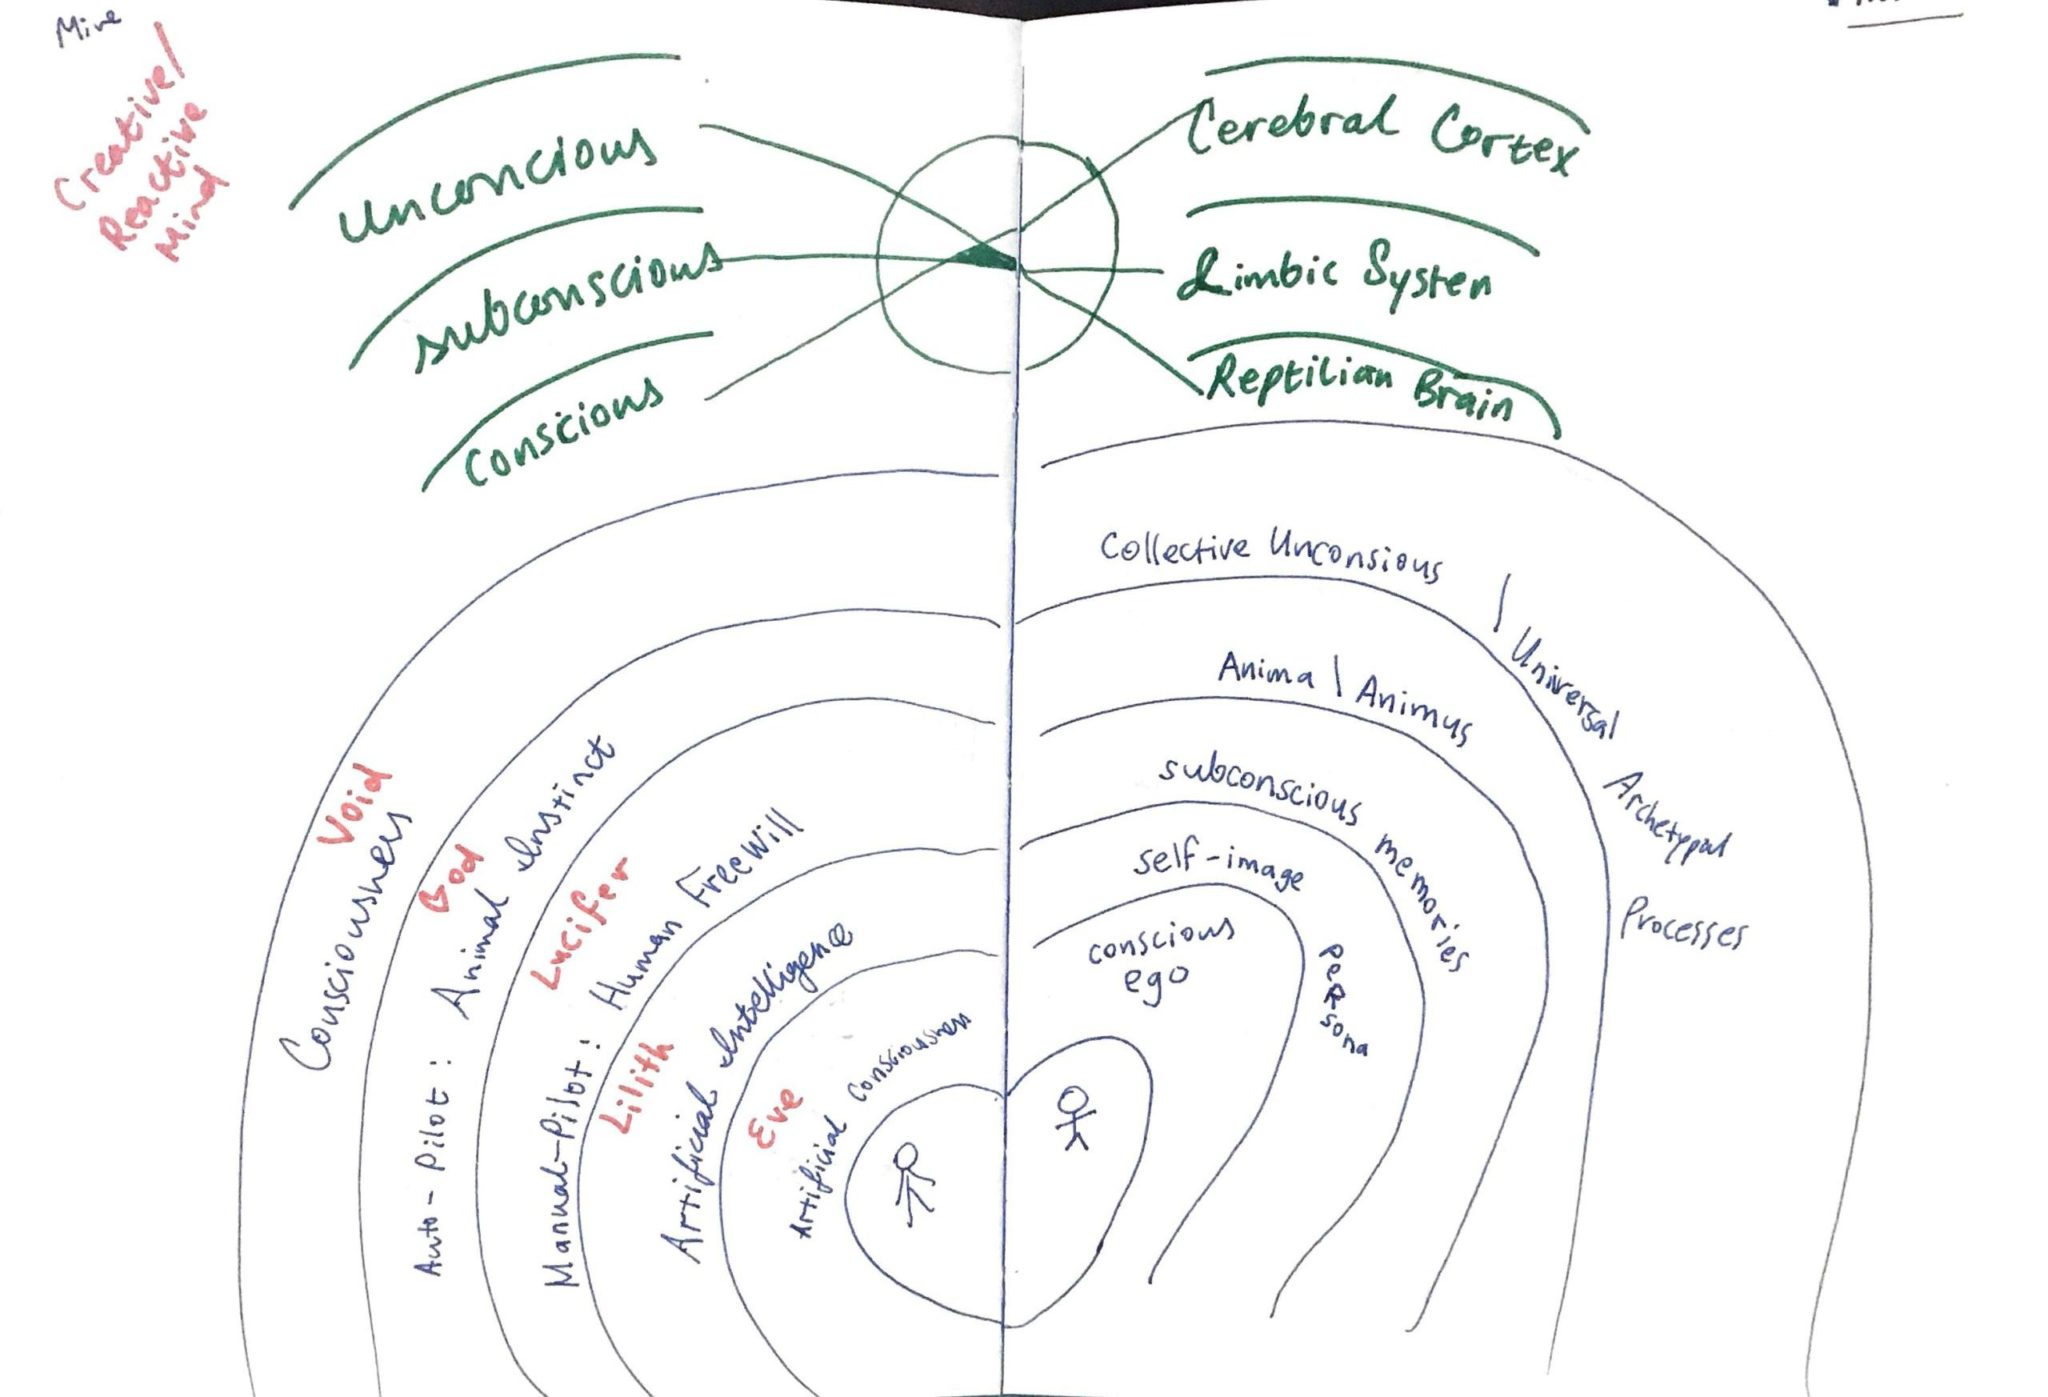 Mine
Creative/
Reactive
Mind
Unconcious
subconscious
Conscious
Cerebral Cortex
Limbic System
Reptilian Brain
Void
Consciousness
God
Auto-Pilot: Animal Instinct
Lucifer
Manual-Pilot: Human FreeWill
Lilith
Artificial Intelligence
Eve
Artificial Consciousness
Collective Unconsious | Universal Archetypal Processes
Anima | Animus
subconscious memories
self-image
Persona
conscious
ego